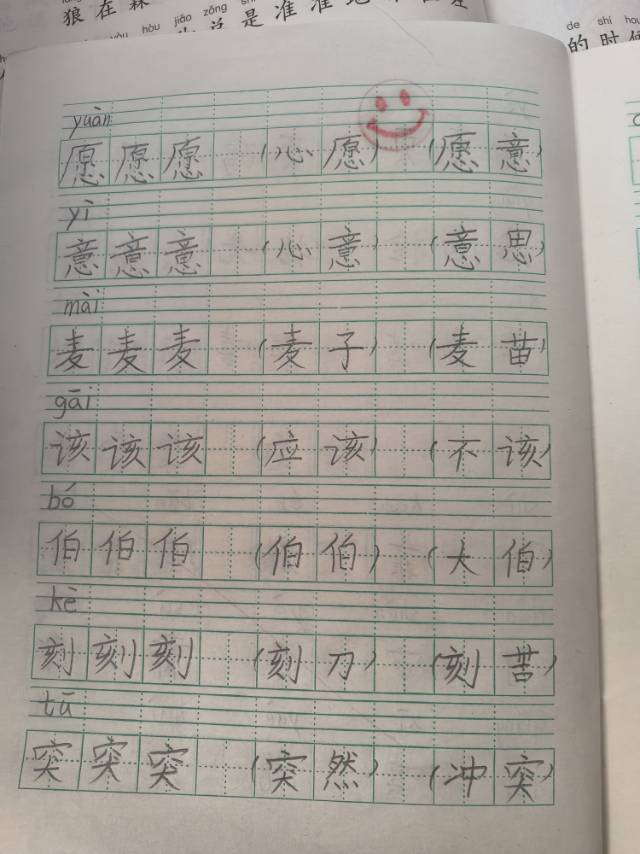 狼在森
是准准地
的时候
yuàn
愿愿愿(心愿)(愿意)
yì
意意意(心意)(意思)
mài
麦麦麦(麦子)(麦苗)
gāi
该该该(应该)(不该)
bó
伯伯伯(伯伯)(大伯)
kè
刻刻刻(刻刀)(刻苦)
tū
突突突(突然)(冲突)